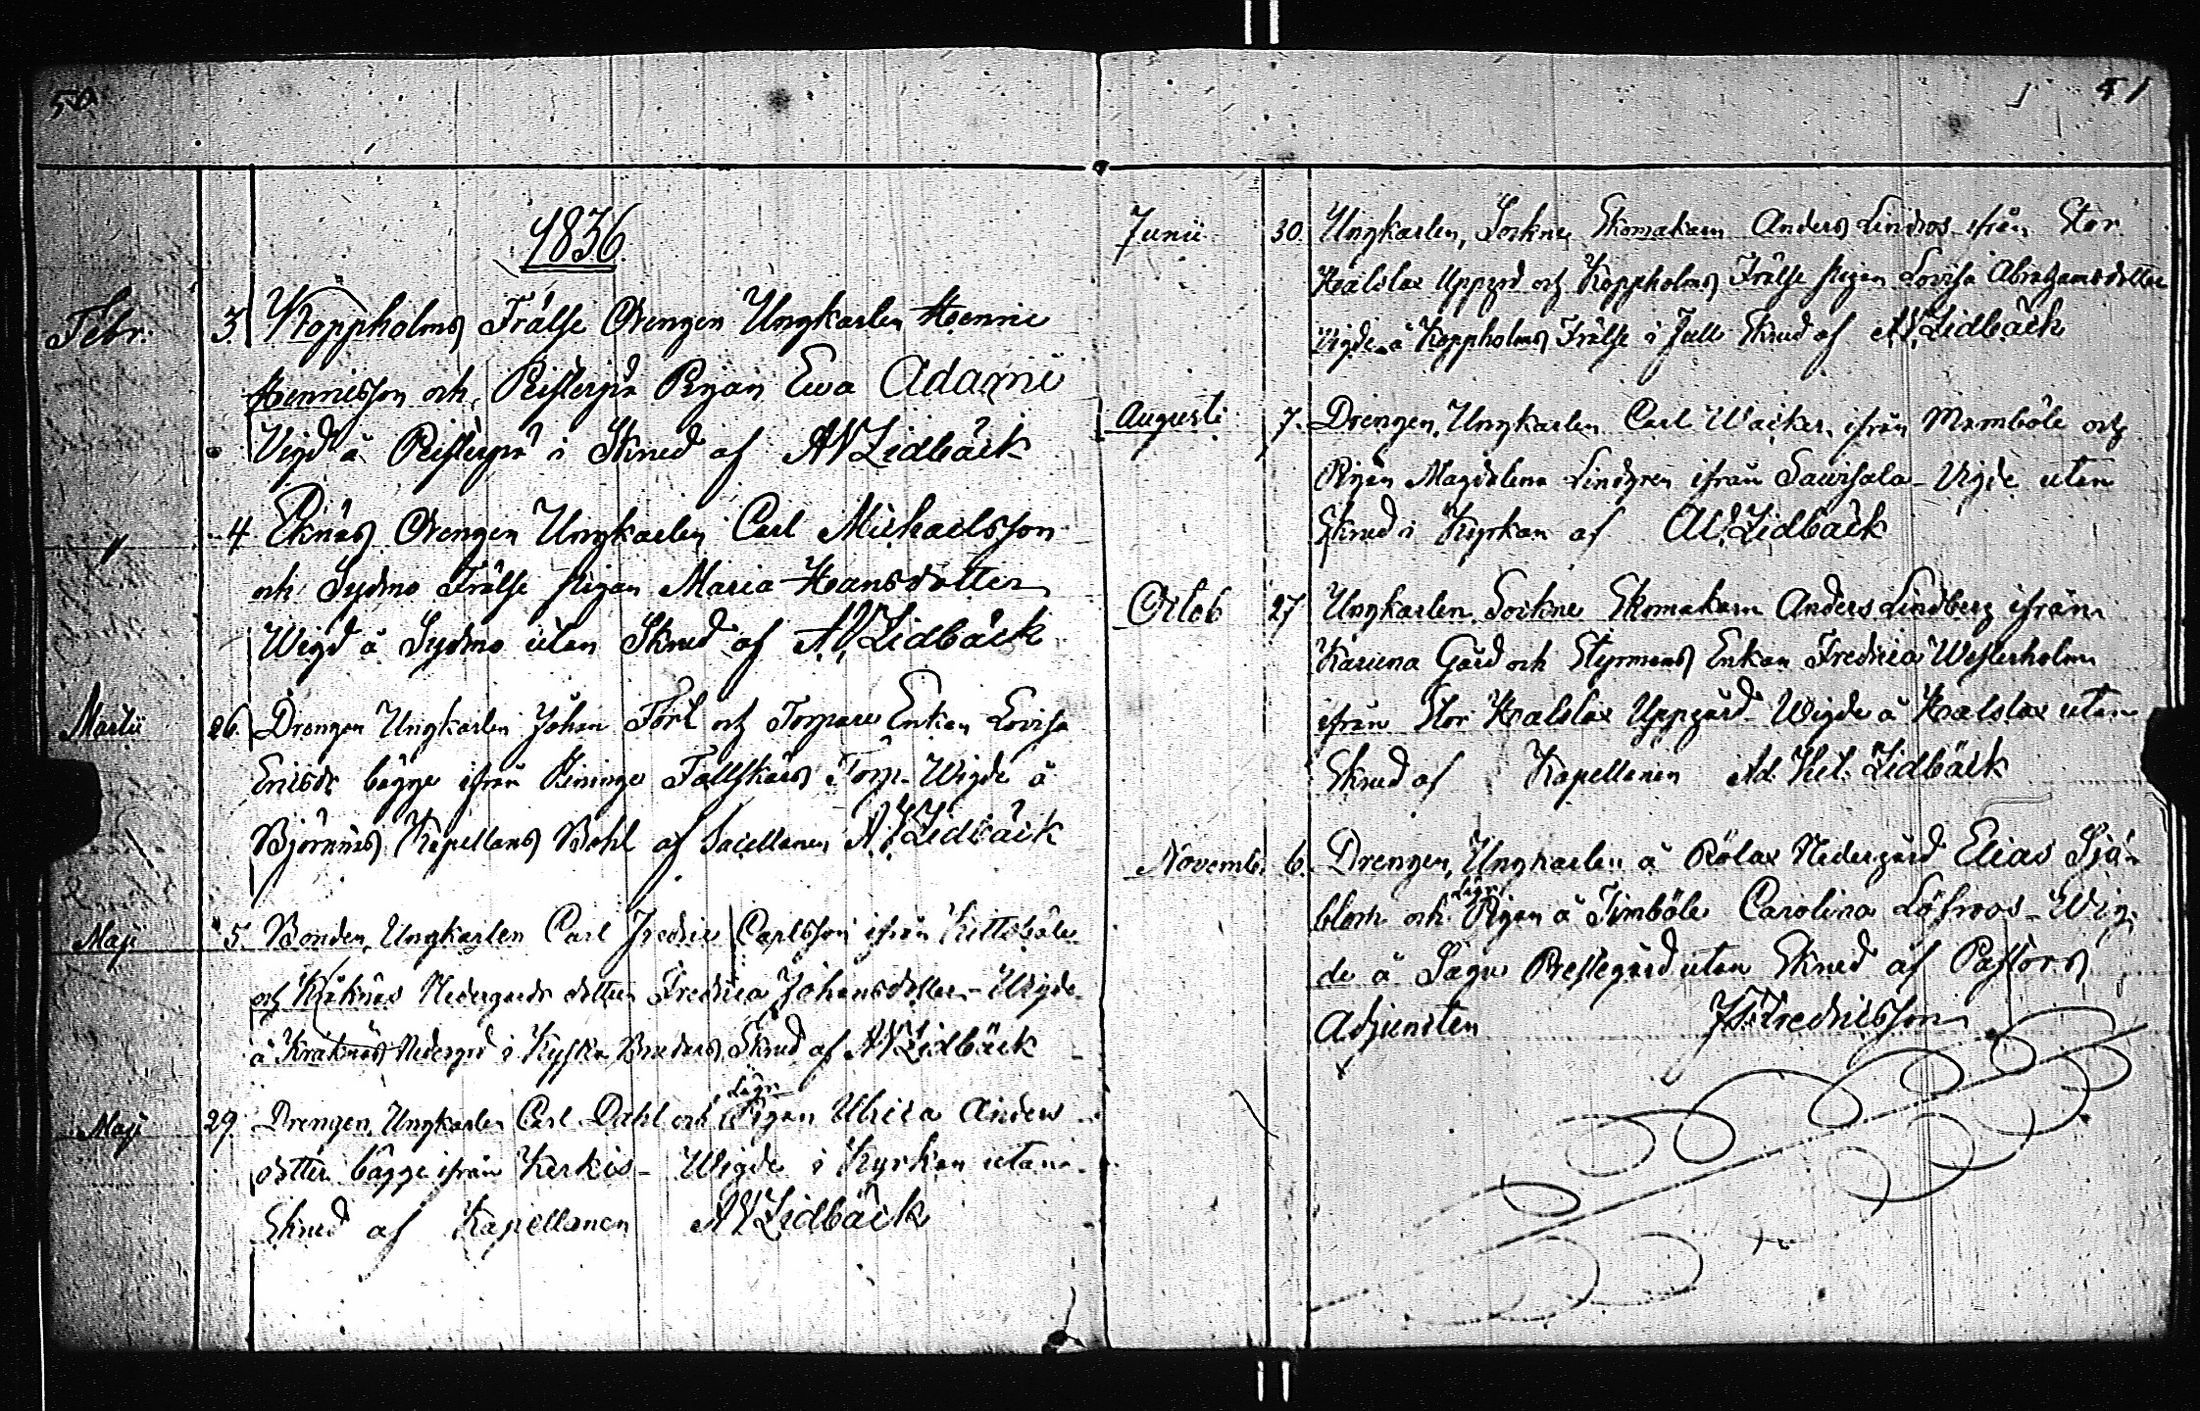 50
1836.
Febr. 3. Koppholms Frälse Drengen Ungkarlen Henric
Henricsson och Pigan Ewa Adami
Vigd å i Skrud af A V Lidbäck
" 4 Eknäs Drengen Ungkarlen Carl Michaelsson
och Sydmo Frälse pigan Maria Hansdotter
Wigd å Sydmo utan Skrud af A. V. Lidbäck
Martii 26. Drengen Ungkarlen Johan och Torpare Enkan Lovisa
Ericsdr bägge ifrån Torp. Wigde å
Björnnäs Kapellans Bohl af Sacellanen A V Lidbäck
Maji 5. Bonden, Ungkarlen Carl Fredric Carlsson ifrån
och Kräknäs Nedergards dottren Fredrica Johansdotter - Wigde
å Kräknäs Nedergrd i Skrud af A V Lidbäck
Maji 29. Drengen, Ungkarlen Carl Dahl och Pigan Ulrica Anders
dotter bägge ifrån Kerkis - Wigde i Kyrkan utan
Skrud af Kapellanen A V Lidbäck
51
Junii 30. Ungkarlen, Sockne Skomakarn Anders Lindros ifrån Stor
Halslax Uppgrd och Koppholms Frälse pigan Lovisa Abrahamsdotter
Vigde å Koppholms Frälse i full Skrud af A V Lidbäck
Augusti 7. Drengen, Ungkarlen Carl Wacker ifrån och
Pigan Magdalena Lindgren ifrån - Vigde utan
Skrud i Kyrkan af A V Lidbäck
Octob 27 Ungkarlen, Sockne Skomakarn Anders Lindberg ifrån
Karuna Gård och Styrmans Enkan Fredrica Westerholm
ifrån Stor Halslax Uppgård - Wigde å Halslax utan
Skrud af Kapellanen Ad. Vil. Lidbäck
Novemb. 6. Drengen, Ungkarlen å Rölax Nedergård Elias Sjö
blom och Pigan å Timböle Carolina Löfroos - Wig
de å Sagu Prestegård utan Skrud af Pastors
Adjuncten Fredricsson